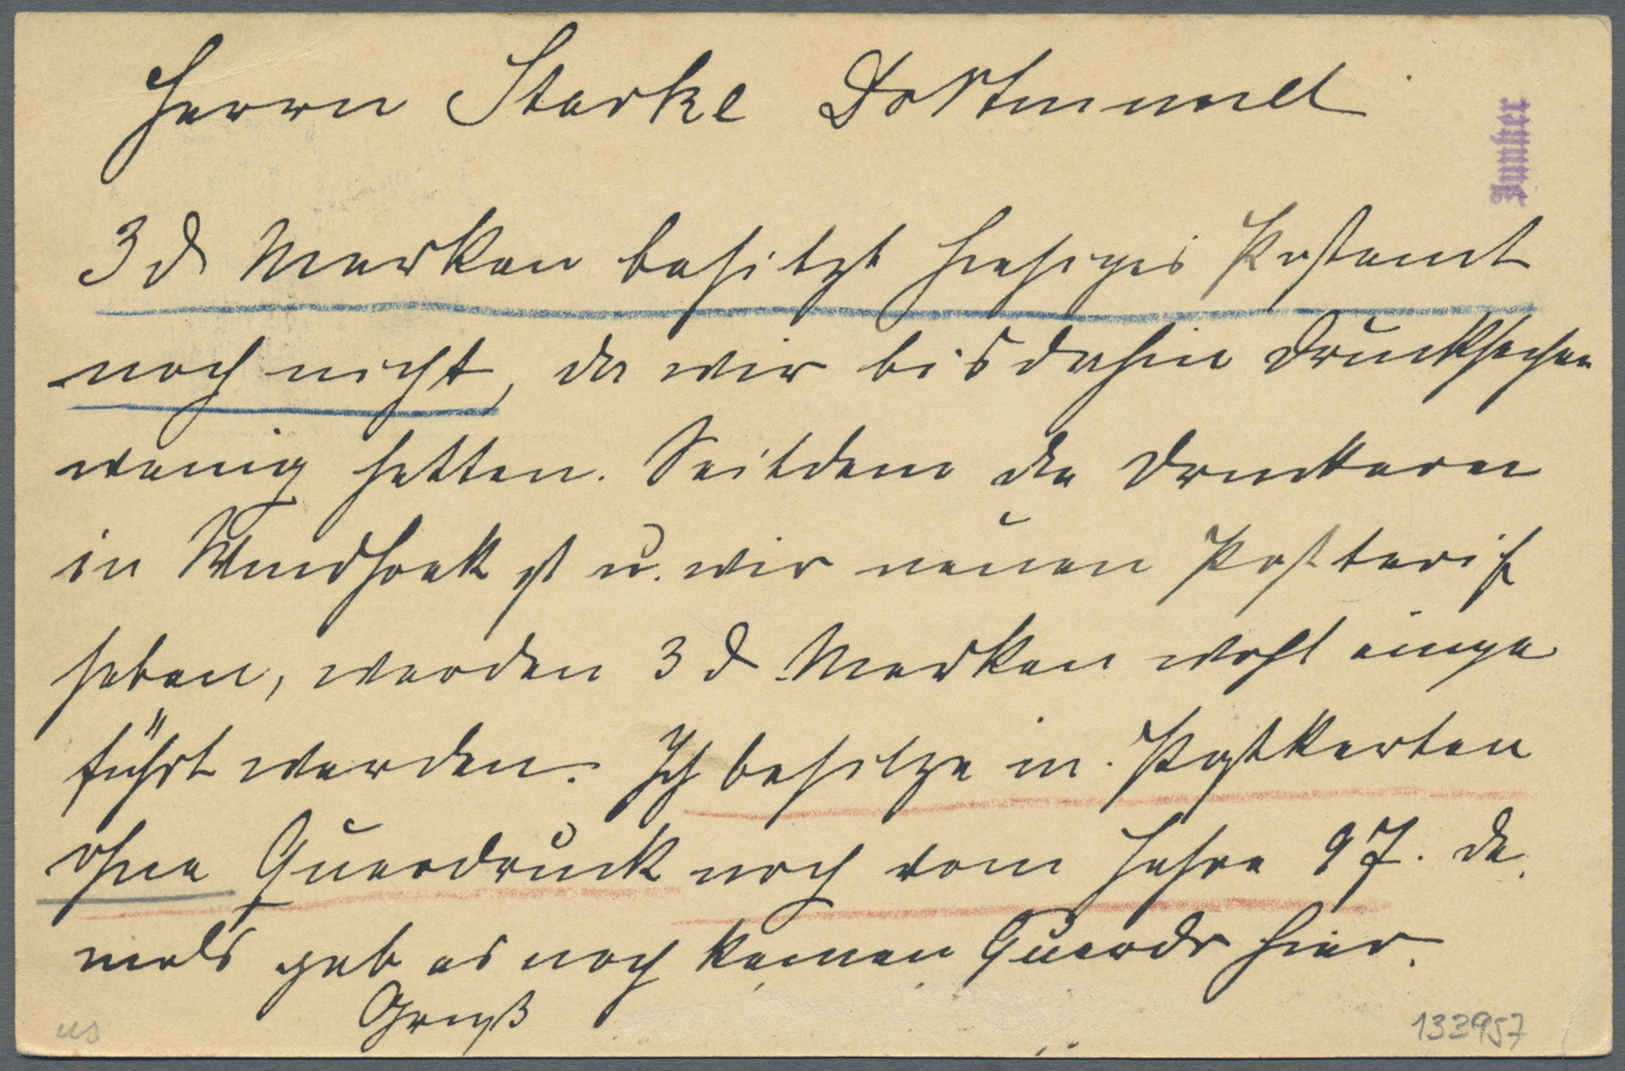 Herrn Starke Dortmund
Junker
3 ₰ Marken besitzt hiesiges Postamt
noch nicht, da wir bis dahin Drucksachen
wenig hatten. Seitdem die Druckerei
in Windhoek ist u. wir neuen Posttarif
haben, werden 3 ₰ Marken wohl einge
führt werden. Ich besitze in. Postkarten
ohne Querdruck noch vom Jahre 97. da,
mals gab es noch keinen Querdr hier.
Gruß
us
133957